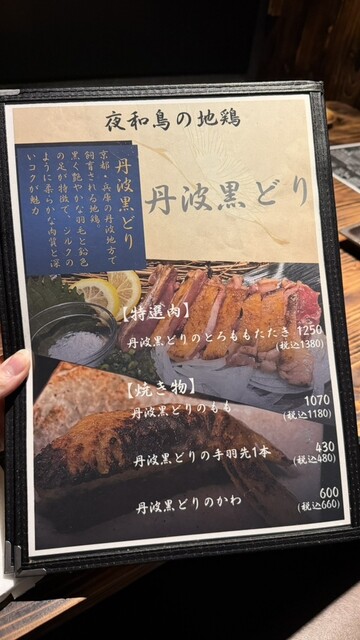 夜和鳥の地鶏
丹波黒どり
京都・兵庫の丹波地方で
飼育される地鶏。
黒く艶やかな羽毛と鉛色
の足が特徴で、シルクの
ように柔らかな肉質と深
いコクが魅力
丹波黒どり
【特選肉】
丹波黒どりのとろももたたき 1250
(税込1380)
【焼き物】
丹波黒どりのもも 1070
(税込1180)
丹波黒どりの手羽先1本 430
(税込480)
丹波黒どりのかわ 600
(税込660)